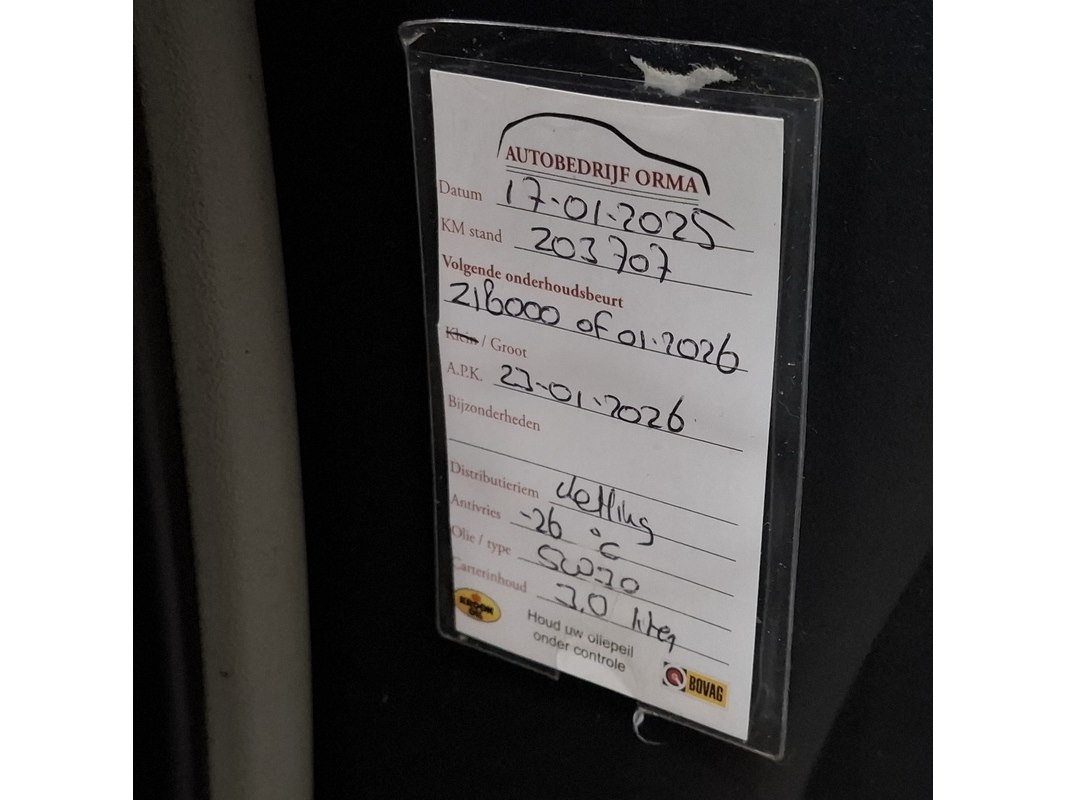 AUTOBEDRIJF ORMA
Datum 17-01-2025
KM stand 203707
Volgende onderhoudsbeurt
218000 of 01-2026
Klein / Groot
A.P.K. 23-01-2026
Bijzonderheden
Distributieriem ketting
Antivries -26 °C
Olie / type 5W30
Carterinhoud 3,0 liter
KROON OIL
Houd uw oliepeil
onder controle
BOVAG